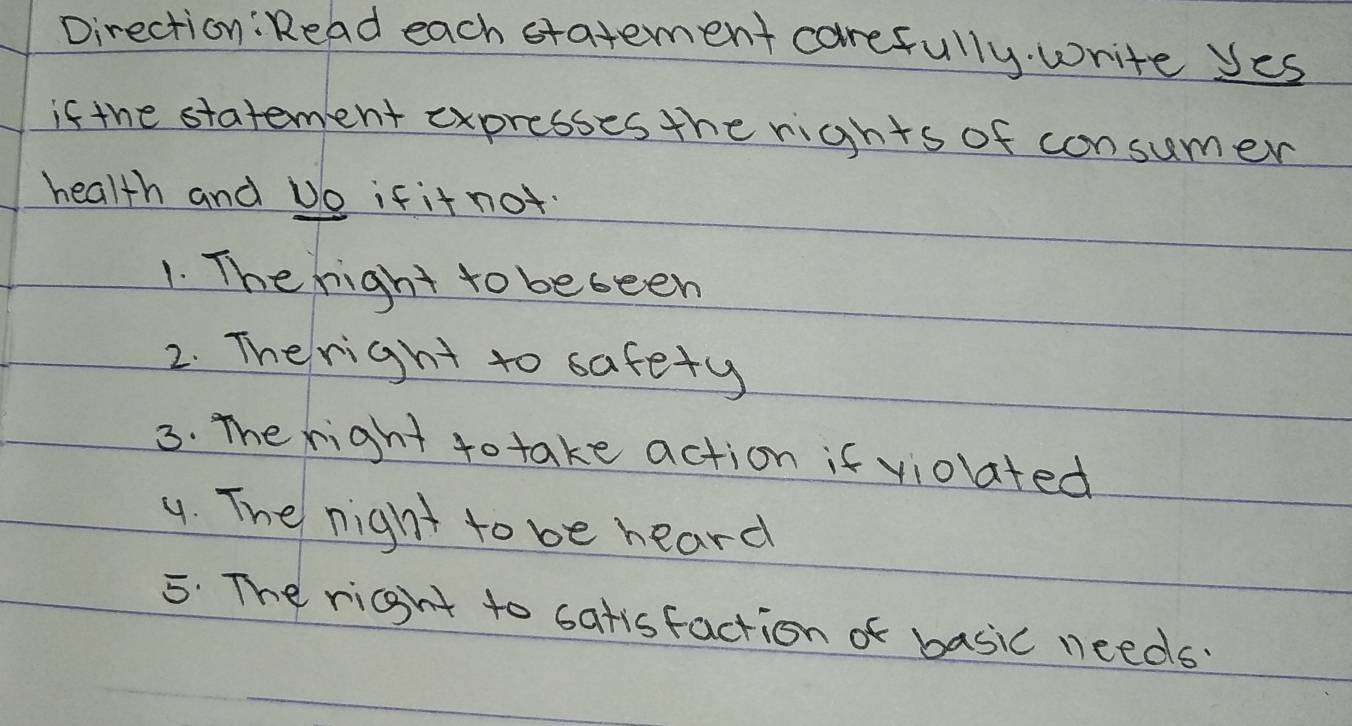 Direction: Read each statement carefully. Write Yes
if the statement expresses the rights of consumer
health and No if it not.
1. The right to be seen
2. The right to safety
3. The right to take action if violated
4. The right to be heard
5. The right to satisfaction of basic needs.